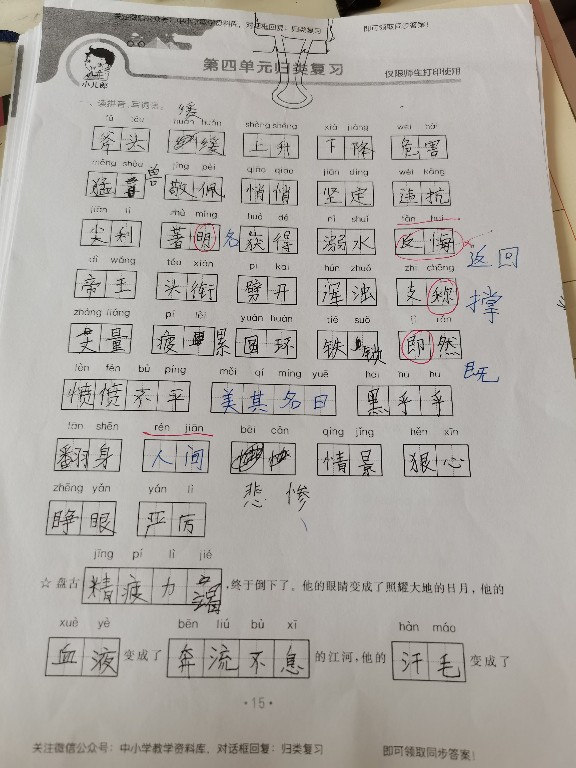 关注微信公众号：中小学教学资料库，对话框回复：归类复习 即可领取同步答案！
小儿郎
第四单元归类复习 仅限师生打印使用
一、读拼音，写词语。 缓
fǔ tóu huǎn huǎn shàng shēng xià jiàng wēi hài
斧头 缓 上升 下降 危害
měng shòu jìng pèi qiāo qiāo jiān dìng wéi kàng
猛 兽 敬佩 悄悄 坚定 违抗
jiān lì zhù míng huò dé nì shuǐ fǎn huǐ
尖利 著明 名 获得 溺水 反悔 返回
dì wáng tóu xián pī kāi hún zhuó zhī chēng
帝王 头衔 劈开 浑浊 支称 撑
zhàng liáng pí lèi yuán huán tiě suǒ jì rán
丈量 疲 累 圆环 铁 锁 即然 既
fèn fèn bù píng měi qí míng yuē hēi hū hū
愤愤不平 美其名曰 黑乎乎
fān shēn rén jiān bēi cǎn qíng jǐng hěn xīn
翻身 人间 情景 狠心
悲惨
zhēng yǎn yán lì
睁眼 严厉
jīng pí lì jié
☆ 盘古 精疲力竭 ，终于倒下了。他的眼睛变成了照耀大地的日月，他的
xuè yè bēn liú bù xī hàn máo
血液 变成了 奔流不息 的江河，他的 汗毛 变成了
· 15 ·
关注微信公众号：中小学教学资料库，对话框回复：归类复习 即可领取同步答案！